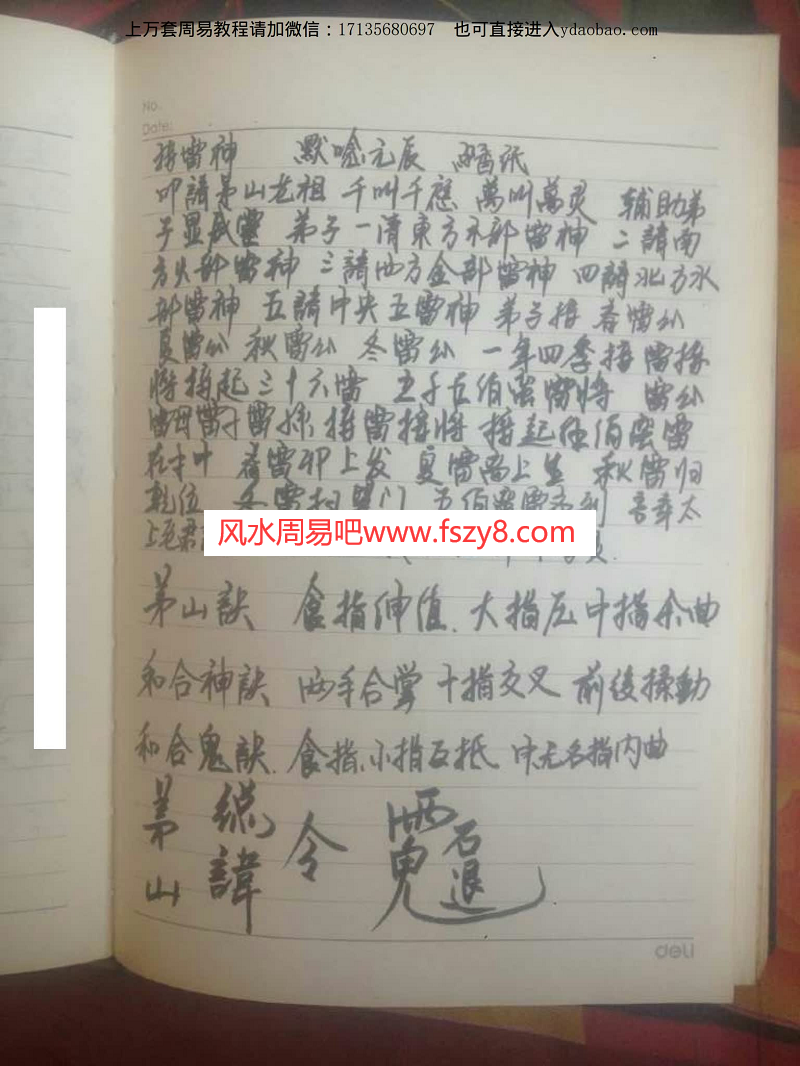 上万套周易教程请加微信：17135680697 也可直接进入ydaobao.com
No.
Date:
接雷神 默唸元辰 香纸
叩請茅山老祖 千叫千應 萬叫萬灵 辅助弟
子显威靈 弟子一請東方木部雷神 二請南
方火部雷神 三請西方金部雷神 四請北方水
部雷神 五請中央五雷神 弟子接 春雷公
夏雷公 秋雷公 冬雷公 一年四季接雷接
將 接起三十六雷 五千五佰蛮雷將 雷公
雷母雷子雷孫 接雷接將 接起伍佰蛮雷
在 春雷卯上发 夏雷离上生 秋雷归
乾位 冬雷 门 五佰蛮雷 吾奉太
上老君
风水周易吧www.fszy8.com
茅山訣 食指伸值. 大指压中指余曲
和合神訣 两手合掌 十指交叉 前後揉動
和合鬼訣. 食指、小指互抵 中无名指内曲
茅山 總諱 令 石退
deli